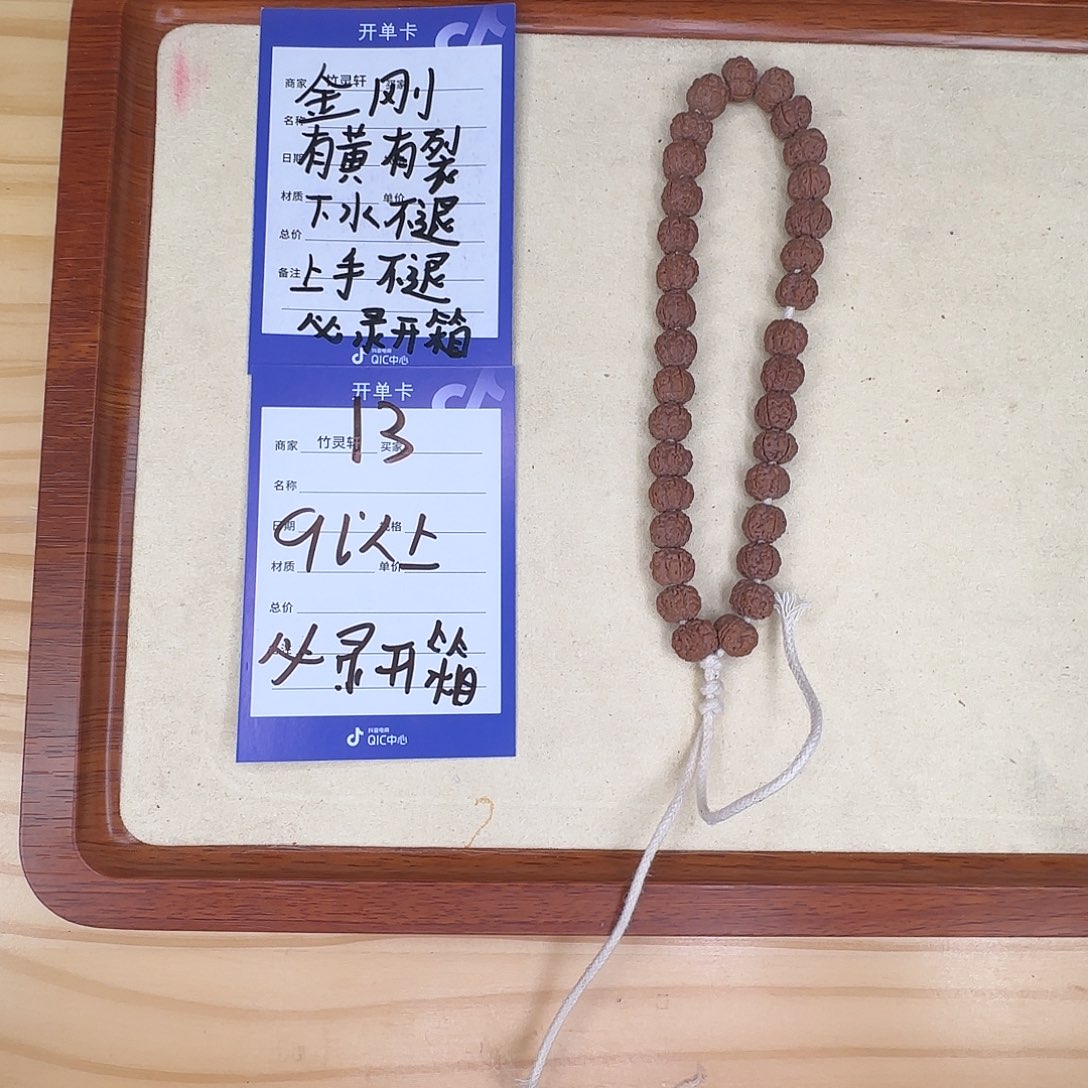 开单卡
商家 竹灵轩 买家
金刚
名称
有黄有裂
日期
材质 单价
下水不退
总价
备注
上手不退
必录开箱
抖音电商
QIC中心
开单卡
13
商家 竹灵轩 买家
名称
日期 规格
91以上
材质 单价
总价
必录开箱
抖音电商
QIC中心